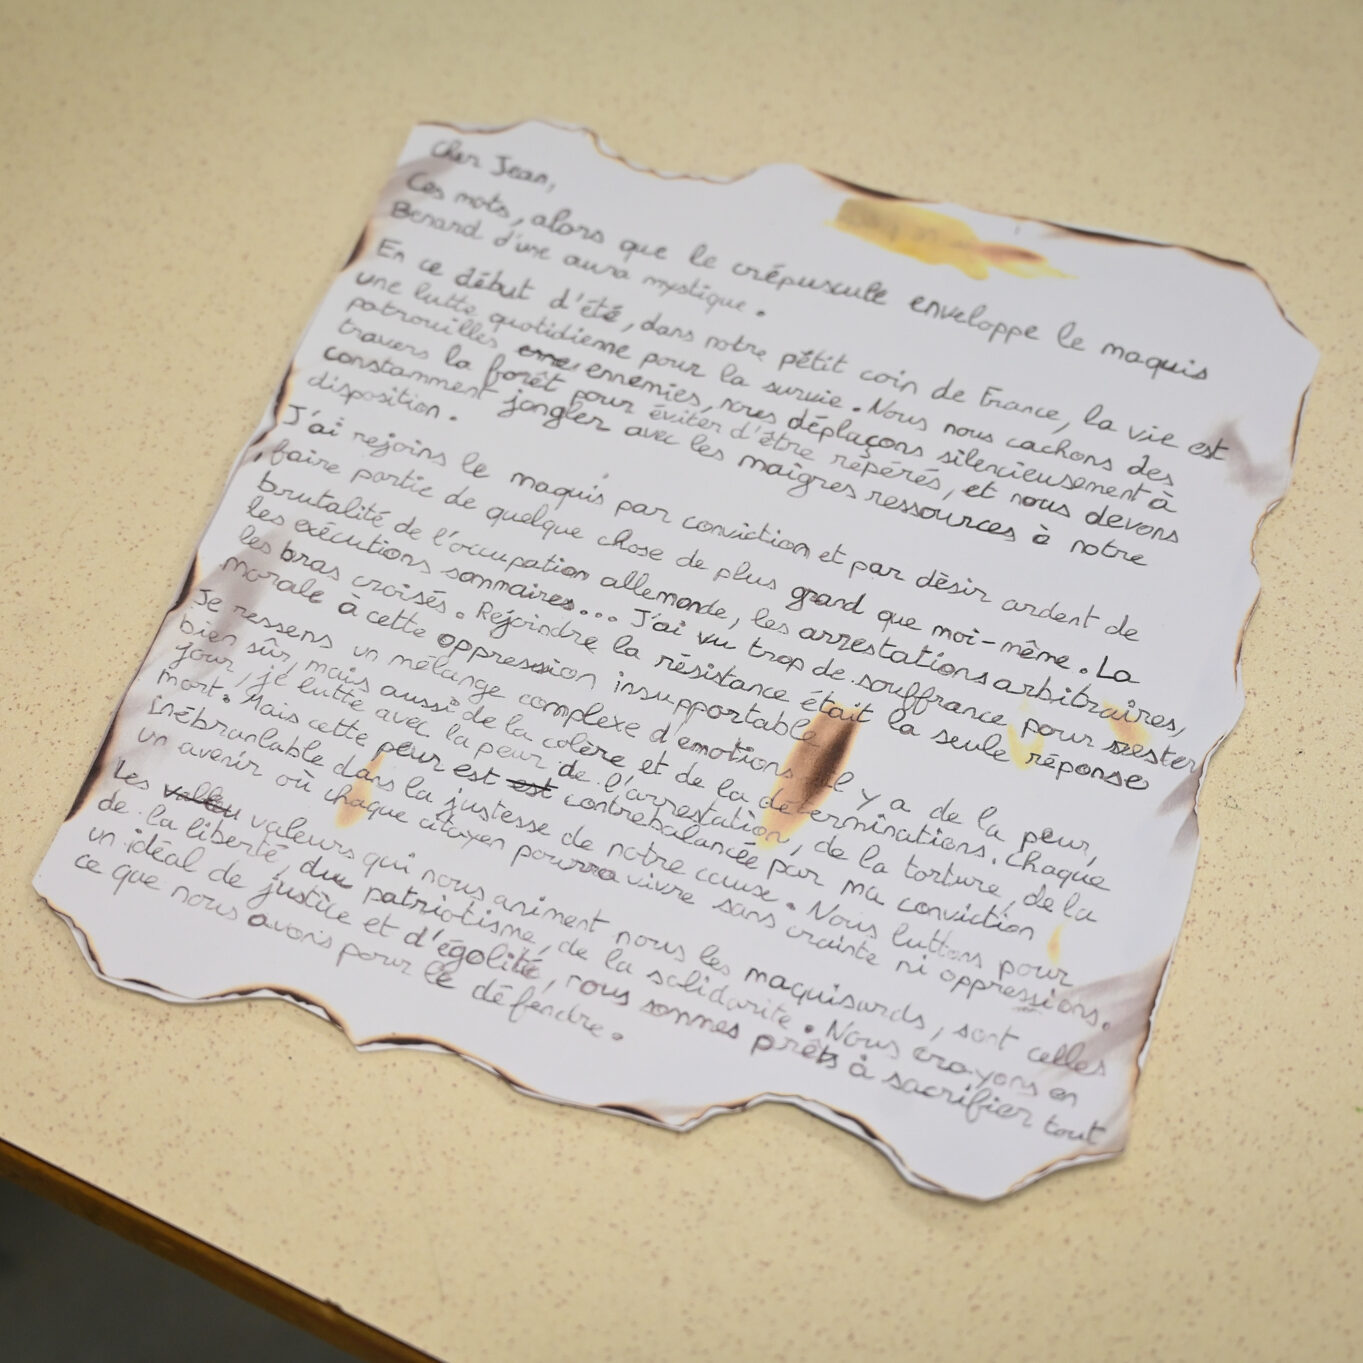 Cher Jean,
Ces mots, alors que le crépuscule enveloppe le maquis
Benard d'une aura mystique.
En ce début d'été, dans notre pétit coin de France, la vie est
une lutte quotidienne pour la survie. Nous nous cachons des
patrouilles enne ennemies, nous déplaçons silencieusement à
travers la forêt pour éviter d'être répérés, et nous devons
constamment jongler avec les maigres ressources à notre
disposition.
J'ai rejoins le maquis par conviction et par désir ardent de
faire partie de quelque chose de plus grand que moi-même. La
brutalité de l'occupation allemande, les arrestations arbitraires,
les exécutions sommaires... J'ai vu trop de souffrance pour rester
les bras croisés. Rejoindre la résistance était la seule réponse
morale à cette oppression insupportable
Je ressens un mélange complexe d'emotions il y a de la peur,
bien sûr, mais aussi de la colère et de la déterminations. Chaque
jour je lutte avec la peur de l'arrestation, de la torture, de la
mort. Mais cette peur est est contrebalancée par ma conviction
inébranlable dans la justesse de notre cause. Nous luttons pour
un avenir où chaque citoyen pourra vivre sans crainte ni oppressions.
Les valleu valeurs qui nous animent nous les maquisards, sont celles
de la liberté, du patriotisme, de la solidarité. Nous croyons en
un idéal de justice et d'égalité, nous sommes prêts à sacrifier tout
ce que nous avons pour le défendre.